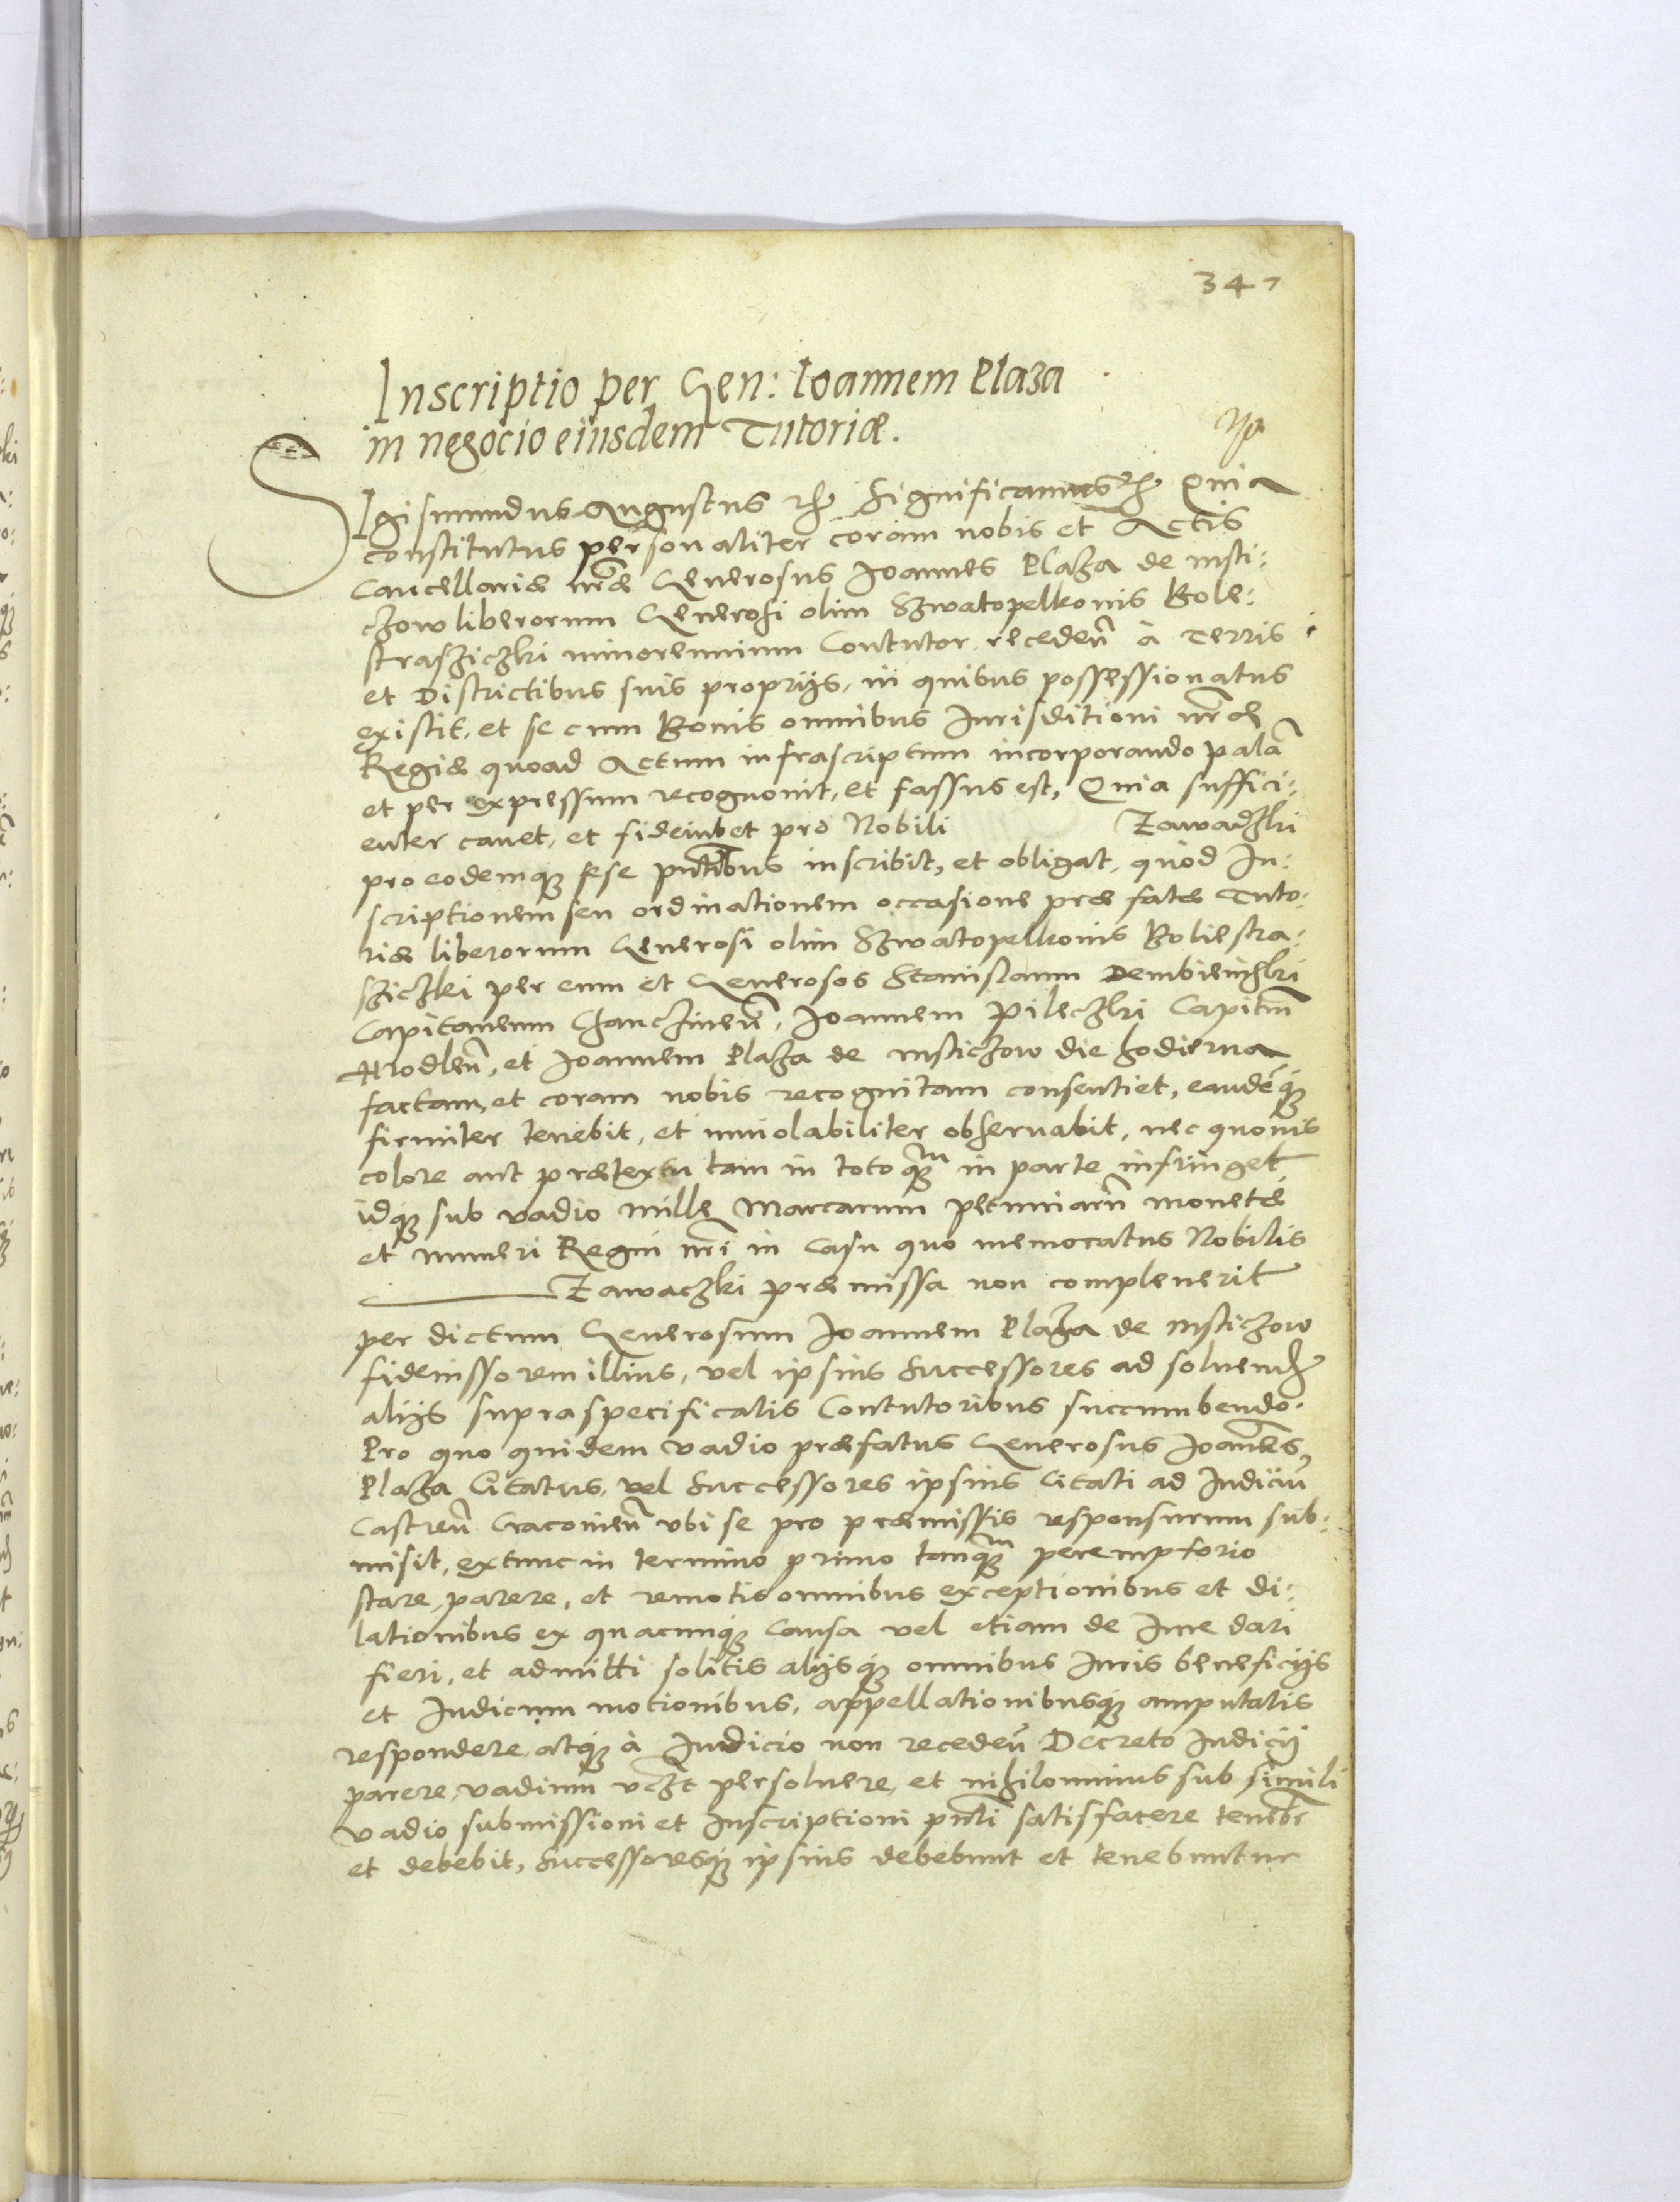 347
Inscriptio per Gen: Ioannem Plaza
in negocio eiusdem Tutoriæ.
SIgismundus Augustus etc Significamus etc Quia
constitutus personaliter coram nobis et Actis
Cancellariæ nr̃æ Generosus Joannes Plaza de Msti:
czow liberorum Generosi olim Szwatopelkonis Bole:
strasziczki minorennium Contutor recedeñ à Terris
et Districtibus suis proprijs, in quibus possessionatus
existit, et se cum Bonis omnibus Jurisditioni nr̃æ
Regiæ quoad Actum infrascriptum incorporando palã
et per expressum recognouit, et fassus est, Quia suffici:
enter cauet, et fideiubet pro Nobili Zawadzki
pro eodemq3 sese pñtibus inscribit, et obligat, quod In:
scriptionem seu ordinationem occasione præfatæ Tuto:
riæ liberorum Generosi olim Szwatopelkonis Boliestra:
sziczki per eum et Generosos Stanislaum Dembienski
Capitaneum Chancineñ, Joannem Pileczki Capitm̃
Hrodleñ, et Joannem Plaza de Msticzow die hodierna
factam, et coram nobis recognitam consentiet, eandẽq3
firmiter tenebit, et inuiolabiliter obseruabit, nec quouis
colore aut prætextu tam in toto q3m in parte infringet
idq3 sub vadio mille Marcarum pecuniarũ monetæ
et numeri Regni nr̃i in casu quo memoratus Nobilis
Zawaczki præmissa non compleuerit
per dictum Generosum Joannem Plaza de Msticzow
fideiussorem illius, vel ipsius Successores ad soluend
alijs supraspecificatis Contutoribus succumbendo.
Pro quo quidem vadio præfatus Generosus Joañes
Plaza Citatus, vel Successores ipsius Citati ad Judiciũ
Castreñ Cracouieñ vbi se pro præmissis responsurum sub:
misit, extunc in termino primo tanq3m peremptorio
stare, parere, et remotis omnibus exceptionibus et di:
lationibus ex quacunq3 causa vel etiam de Jure dari
fieri, et admitti solitis alijsq3 omnibus Juris beneficijs
et Judicum motionibus, appellationibusq3 amputatis
respondere, atq3 à Judicio non recedeñ Decreto Judicij
parere, vadium vt3t persoluere, et nihilominus sub simili
vadio submissioni et Inscriptioni pñti satisfacere tenebr
et debebit, Successoresq3 ipsius debebunt et tenebuntur